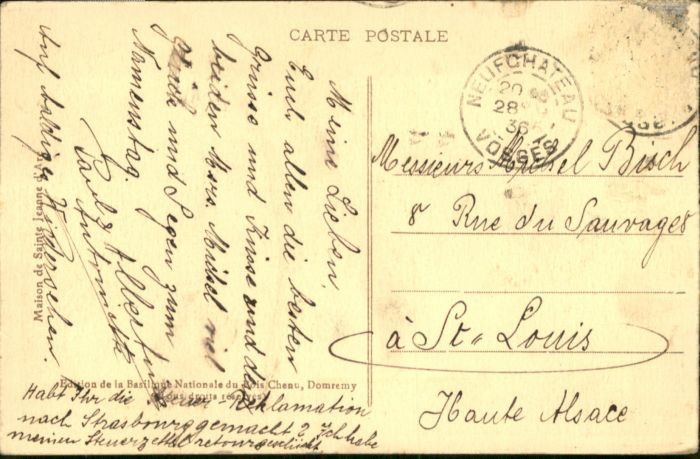 CARTE POSTALE
Meine Lieben.
Euch allen die besten
Grüsse und Küsse und den
beiden Mrs. Michel viel
Glück und Segen zum
Namenstag.
Paul & Albertine
Antoinette
Auf baldiges Wiedersehen.
Habt Ihr die Steuer-Reklamation
nach Strasbourg gemacht? Ich habe
meinen Steuerzettel retourgeschickt
Maison de Sainte Jeanne d'Arc
Edition de la Basilique Nationale du Bois Chenu, Domremy
(Tous droits réservés)
NEUFCHATEAU
20
28
36
VOSGES
Messieurs Michel Bisch
8 Rue du Sauvages
à St. Louis
Haute Alsace